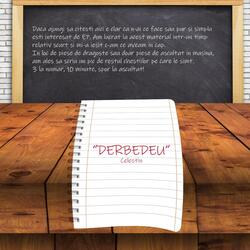 Daca ajungi sa citesti aici e clar ca n-ai ce face sau pur si simplu
esti interesat de E7. Am lucrat la acest material intr-un timp
relativ scurt si mi-a iesit c-am ce aveam in cap.
In loc de piese de dragoste sau doar piese de ascultat in masina,
am ales sa scriu un pic de restul chestiilor pe care le simt.
3 la numar, 10 minute, spor la ascultat!
"DERBEDEU"
Celestin